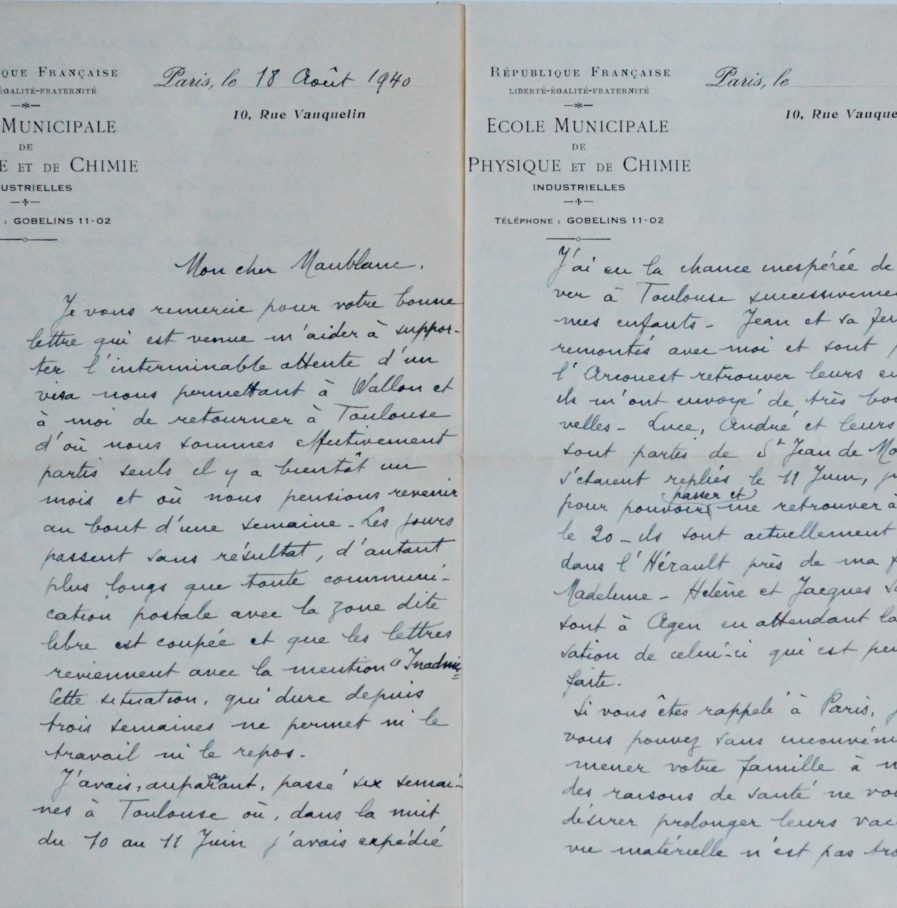 QUE FRANÇAISE
ÉGALITÉ-FRATERNITÉ
MUNICIPALE
DE
E ET DE CHIMIE
USTRIELLES
: GOBELINS 11-02
Paris, le 18 Août 1940
10, Rue Vauquelin
Mon cher Maublanc,
Je vous remercie pour votre bonne
lettre qui est venue m'aider à suppor-
ter l'interminable attente d'un
visa nous permettant à Wallon et
à moi de retourner à Toulouse
d'où nous sommes effectivement
partis seuls il y a bientôt un
mois et où nous pensions revenir
au bout d'une semaine - Les jours
passent sans résultat, d'autant
plus longs que toute communi-
cation postale avec la zone dite
libre est coupée et que les lettres
reviennent avec la mention "Inadmis
Cette situation, qui dure depuis
trois semaines ne permet ni le
travail ni le repos.
J'avais, auparavant, passé six semai-
nes à Toulouse où, dans la nuit
du 10 au 11 Juin j'avais expédié
RÉPUBLIQUE FRANÇAISE
LIBERTÉ-ÉGALITÉ-FRATERNITÉ
ECOLE MUNICIPALE
DE
PHYSIQUE ET DE CHIMIE
INDUSTRIELLES
TÉLÉPHONE : GOBELINS 11-02
Paris, le
10, Rue Vauque
J'ai eu la chance inespérée de
ver à Toulouse successiveme
mes enfants - Jean et sa fe
remontés avec moi et sont
l'Arcouest retrouver leurs en
ils m'ont envoyé de très bo
velles - Luce, André et leurs
sont partis de St Jean de Mo
s'étaient repliés le 11 Juin,
pour pouvoir passer et me retrouver à
le 20 - ils sont actuellement
dans l'Hérault près de ma
Madeleine - Hélène et Jacques
sont à Agen en attendant la
sation de celui-ci qui est peu
faite.
Si vous êtes rappelé à Paris,
vous pouvez sans inconvéni
mener votre famille à
des raisons de santé ne vo
désirer prolonger leurs vac
vie matérielle n'est pas tro